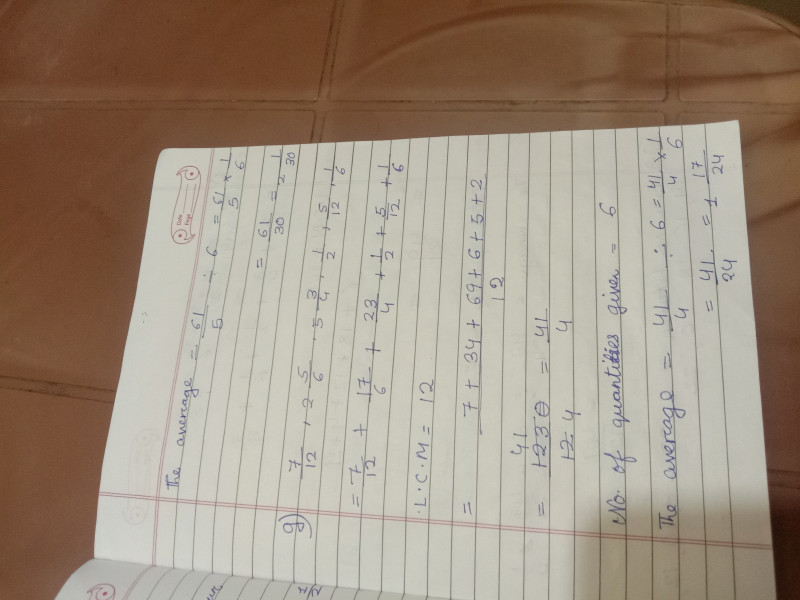 Date
Page
The average = 61/5 ÷ 6 = 61/5 × 1/6
= 61/30 = 2 1/30
g) 7/12, 2 5/6, 5 3/4, 1/2, 5/12, 1/6
= 7/12 + 17/6 + 23/4 + 1/2 + 5/12 + 1/6
L.C.M = 12
= 7 + 34 + 69 + 6 + 5 + 2 / 12
= 123/12 = 41/4
41
4
No. of quantities given = 6
The average = 41/4 ÷ 6 = 41/4 × 1/6
= 41/24 = 1 17/24